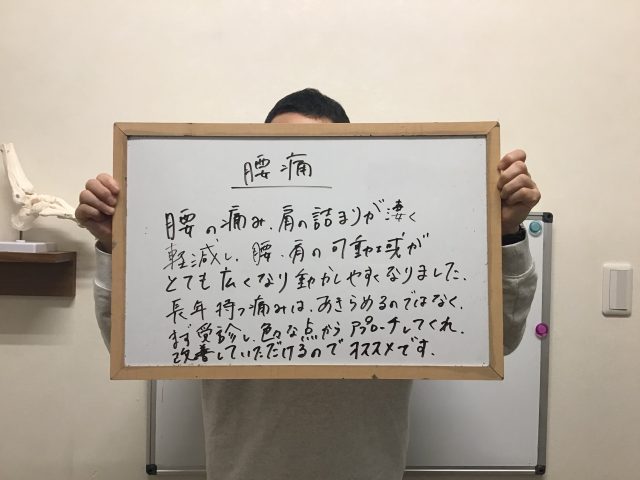 腰痛
腰の痛み、肩の詰まりが凄く
軽減し、腰、肩の可動域が
とても広くなり動かしやすくなりました。
長年持つ痛みは、あきらめるのではなく、
まず受診し、色々な点からアプローチしてくれ、
改善していただけるのでオススメです。